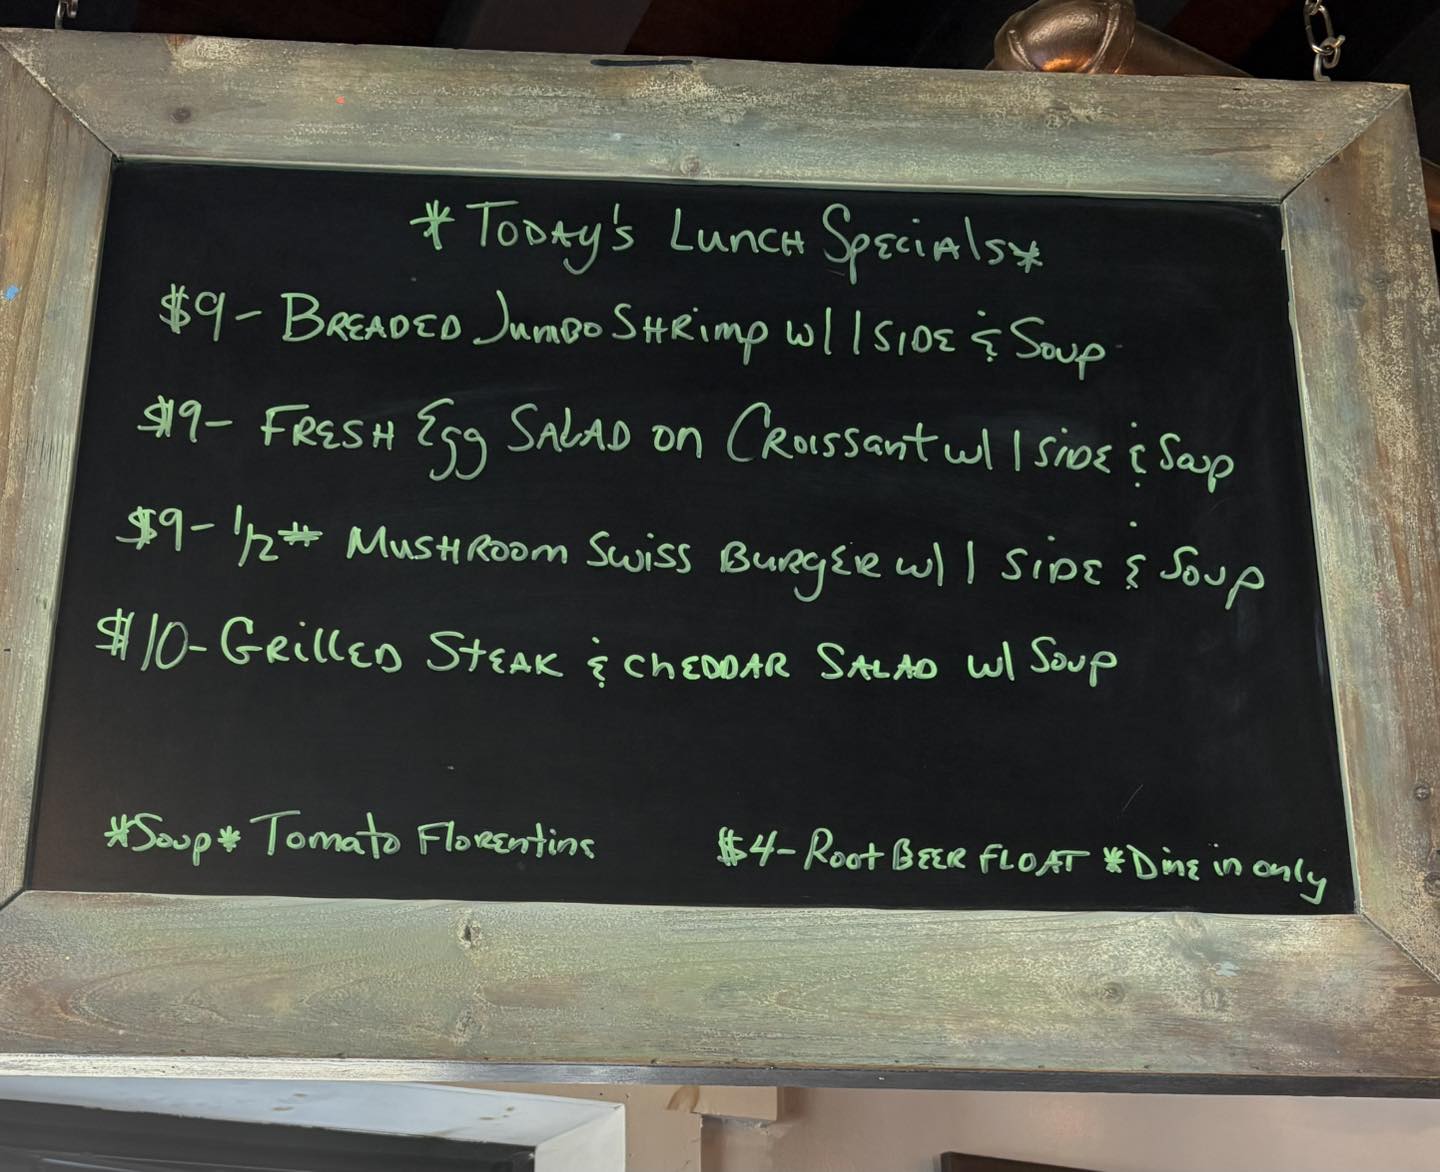 *Today's Lunch Specials*
$9- Breaded Jumbo Shrimp w/ 1 side & Soup
$9- Fresh Egg Salad on Croissant w/ 1 side & Soup
$9- 1/2# Mushroom Swiss Burger w/ 1 side & Soup
$10- Grilled Steak & Cheddar Salad w/ Soup
*Soup* Tomato Florentine
$4- Root Beer Float *Dine in only